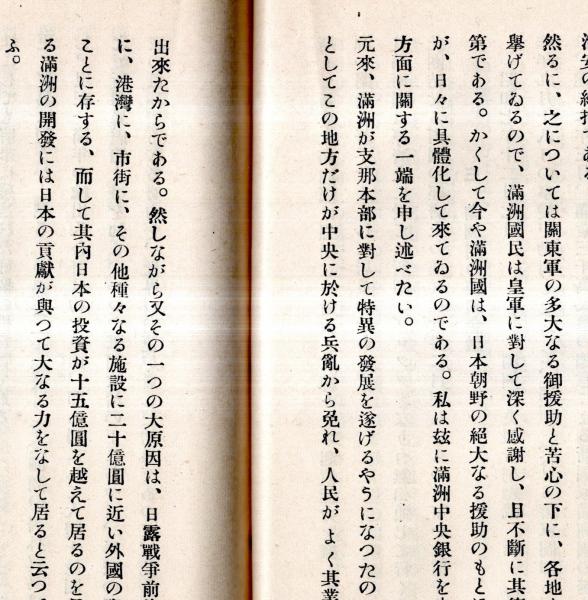 然るに、之については關東軍の多大なる御援助と苦心の下に、各地
擧げてゐるので、滿洲國民は皇軍に對して深く感謝し、且不斷に其
第である。かくして今や滿洲國は、日本朝野の絕大なる援助のもと
が、日々に具體化して來てゐるのである。私は玆に滿洲中央銀行を
方面に關する一端を申し述べたい。
元來、滿洲が支那本部に對して特異の發展を遂げるやうになつたの
としてこの地方だけが中央に於ける兵亂から免れ、人民がよく其業
出來たからである。然しながら又その一つの大原因は、日露戰爭前
に、港灣に、市街に、その他種々なる施設に二十億圓に近い外國の
ことに存する、而して其內日本の投資が十五億圓を越えて居るのを
る滿洲の開發には日本の貢獻が與つて大なる力をなして居ると云つ
ふ。